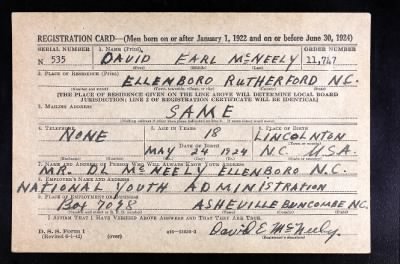 REGISTRATION CARD—(Men born on or after January 1, 1922 and on or before June 30, 1924)
SERIAL NUMBER 1. NAME (Print) ORDER NUMBER
N 535 DAVID EARL McNEELY 11,747
2. PLACE OF RESIDENCE (Print)
ELLENBORO RUTHERFORD N.C.
[THE PLACE OF RESIDENCE GIVEN ON THE LINE ABOVE WILL DETERMINE LOCAL BOARD
JURISDICTION; LINE 2 OF REGISTRATION CERTIFICATE WILL BE IDENTICAL]
3. MAILING ADDRESS
SAME
4. TELEPHONE 5. AGE IN YEARS 6. PLACE OF BIRTH
NONE 18 LINCOLNTON
DATE OF BIRTH
MAY 24 1924 N.C. U.S.A.
7. NAME AND ADDRESS OF PERSON WHO WILL ALWAYS KNOW YOUR ADDRESS
MR. D L McNEELY ELLENBORO N.C.
8. EMPLOYER'S NAME AND ADDRESS
NATIONAL YOUTH ADMINISTRATION
9. PLACE OF EMPLOYMENT OR BUSINESS
BOX 7098 ASHEVILLE BUNCOMBE N.C.
I AFFIRM THAT I HAVE VERIFIED ABOVE ANSWERS AND THAT THEY ARE TRUE.
D. S. S. Form 1
(Revised 6-1-42) (over) David E McNeely